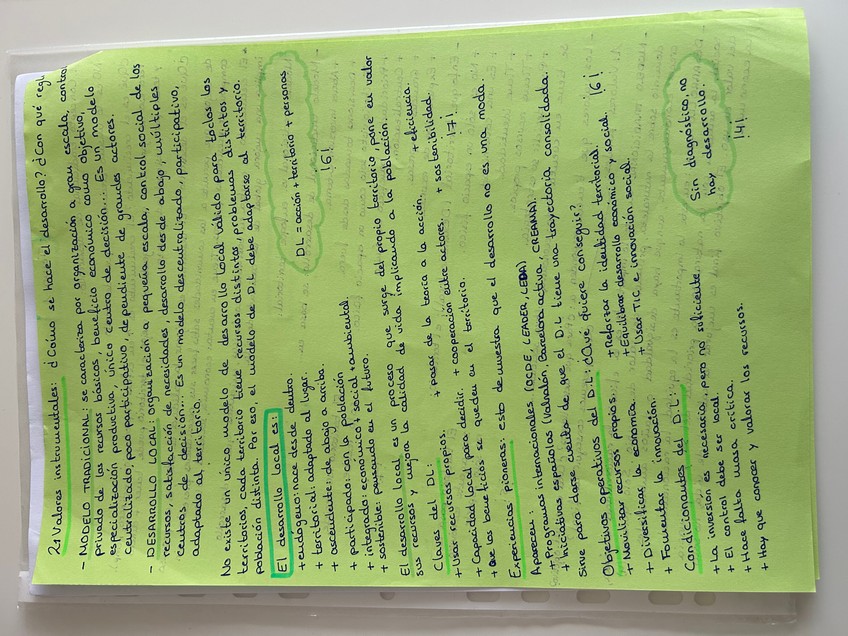 2) Valores instrumentales: ¿Cómo se hace el desarrollo? ¿Con qué regl
- MODELO TRADICIONAL: se caracteriza por organización a gran escala, control
privado de los recursos básicos, beneficio económico como objetivo,
especialización productiva, único centro de decisión... Es un modelo
centralizado, poco participativo, dependiente de grandes actores.
- DESARROLLO LOCAL: organización a pequeña escala, control social de los
recursos, satisfacción de necesidades, desarrollo desde abajo, múltiples
centros de decisión... Es un modelo descentralizado, participativo,
adaptado al territorio.
No existe un único modelo de desarrollo local válido para todos los
territorios, cada territorio tiene recursos distintos, problemas distintos y
población distinta. Por eso, el modelo de D.L debe adaptarse al territorio.
El desarrollo local es:
+ endógeno: nace desde dentro.
+ territorial: adaptado al lugar.
+ ascendente: de abajo a arriba.
+ participado: con la población
+ integrado: económico + social + ambiental.
+ sostenible: pensando en el futuro.
DL = acción + territorio + personas
¡6!
El desarrollo local es un proceso que surge del propio territorio pone en valor
sus recursos y mejora la calidad de vida implicando a la población.
Claves del DL:
+ Usar recursos propios. + pasar de la teoría a la acción. + eficiencia
+ Capacidad local para decidir. + cooperación entre actores. + sostenibilidad.
+ Que los beneficios se queden en el territorio. ¡7!
Experiencias pioneras: esto demuestra que el desarrollo no es una moda.
Aparecen:
+ Programas internacionales (OCDE, LEADER, LEDA)
+ Iniciativas españolas (Valnalón, Barcelona activa, CREANA).
Sirve para darse cuenta de que el D.L tiene una trayectoria consolidada.
Objetivos operativos del D.L: ¿Qué quiere conseguir?
+ Movilizar recursos propios. + Reforzar la identidad territorial.
+ Diversificar la economía. + Equilibrar desarrollo económico y social. ¡6!
+ Fomentar la innovación. + Usar TIC e innovación social.
Condicionantes del D.L:
+ La inversión es necesaria, pero no suficiente.
+ El control debe ser local.
+ Hace falta masa crítica.
+ Hay que conocer y valorar los recursos.
Sin diagnóstico, no
hay desarrollo.
¡4!